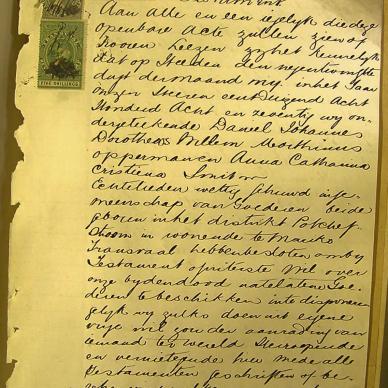 Testament
Aan alle en een regelijk die deze
openbare Acte zullen zien of
hooren leezen zy het kennelyk
dat op Heeden den negentwintigste
dag der maand my. in het Jaar
onzer Heeren een duizend Acht
Honderd Acht en zeventig wy on-
dergeteekende Daniel Johannes
Dorotheus Willem Marthinus
opperman en Anna Catharina
Cristiena Smit
Echtelieden wettig gehuwd in ge-
meenschap van goederen beide
geboren in het distrikt Potchef-
stroom in woonende te Mariko
Transvaal hebben besloten om by
Testament of uiterste Wil over
onze by den dood natelatene Goe-
deren te beschikken
gelyk wy zulks doen uit eigene
vrije wil zonder aanrading van
iemand ter wereld Herroepende
en vernietigende hier mede alle
Testamenten geschriften of be-
FIVE SHILLINGS